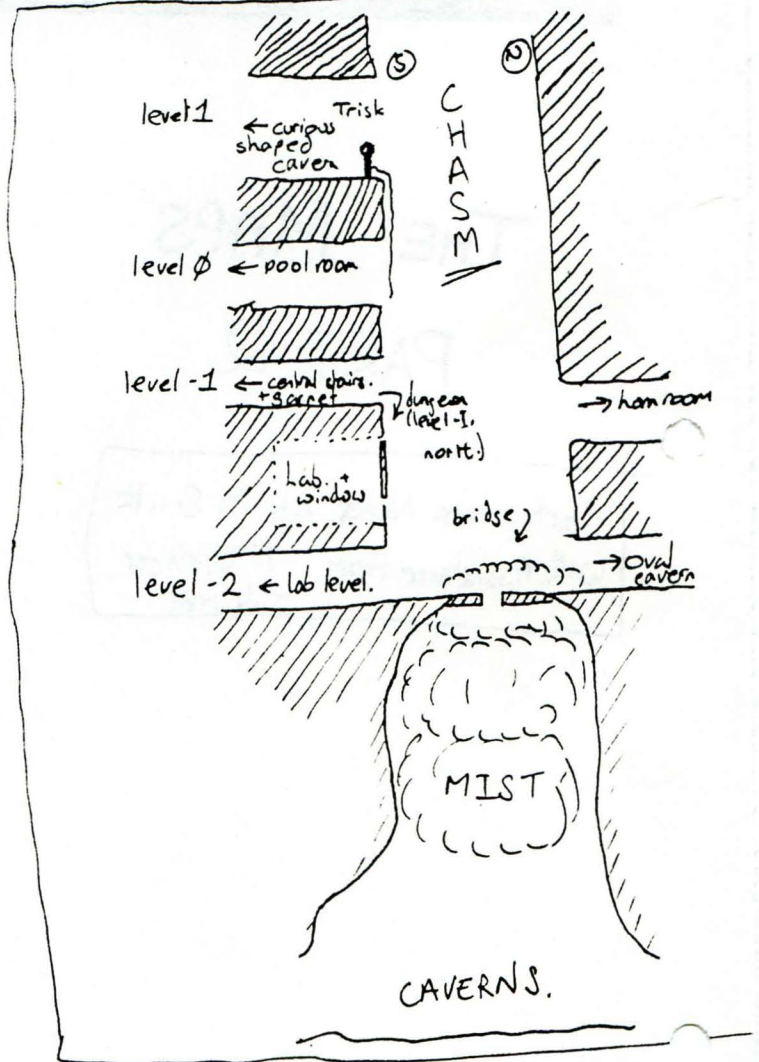 S
N
CHASM
level 1
Trisk
← curious
shaped
cavern
level Ø ← pool room
level -1 ← central stairs.
+ garret
dungeon
(level -1.
north.)
→ horn room
Lab. +
window
bridge
→ Oval
cavern
level -2 ← lab level.
MIST
CAVERNS.